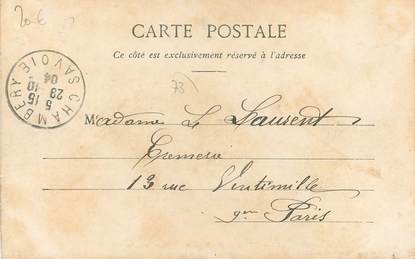 20-6
CARTE POSTALE
Ce côté est exclusivement réservé à l'adresse
73
CHAMBERY
SAVOIE
5 15
29 -10
04
Madame L Laurent
Cremerie
13 rue Vintimille
Paris